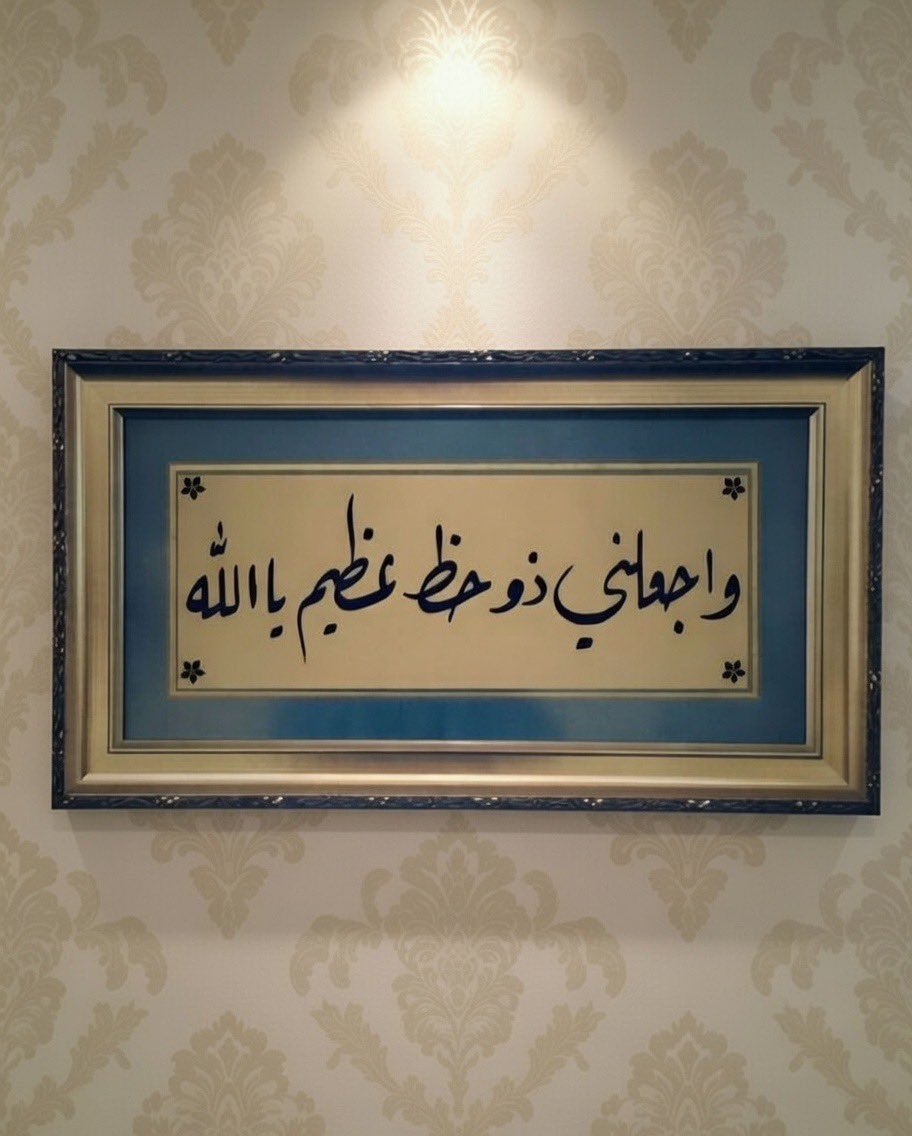 واجعلني ذو حظ عظيم ياالله